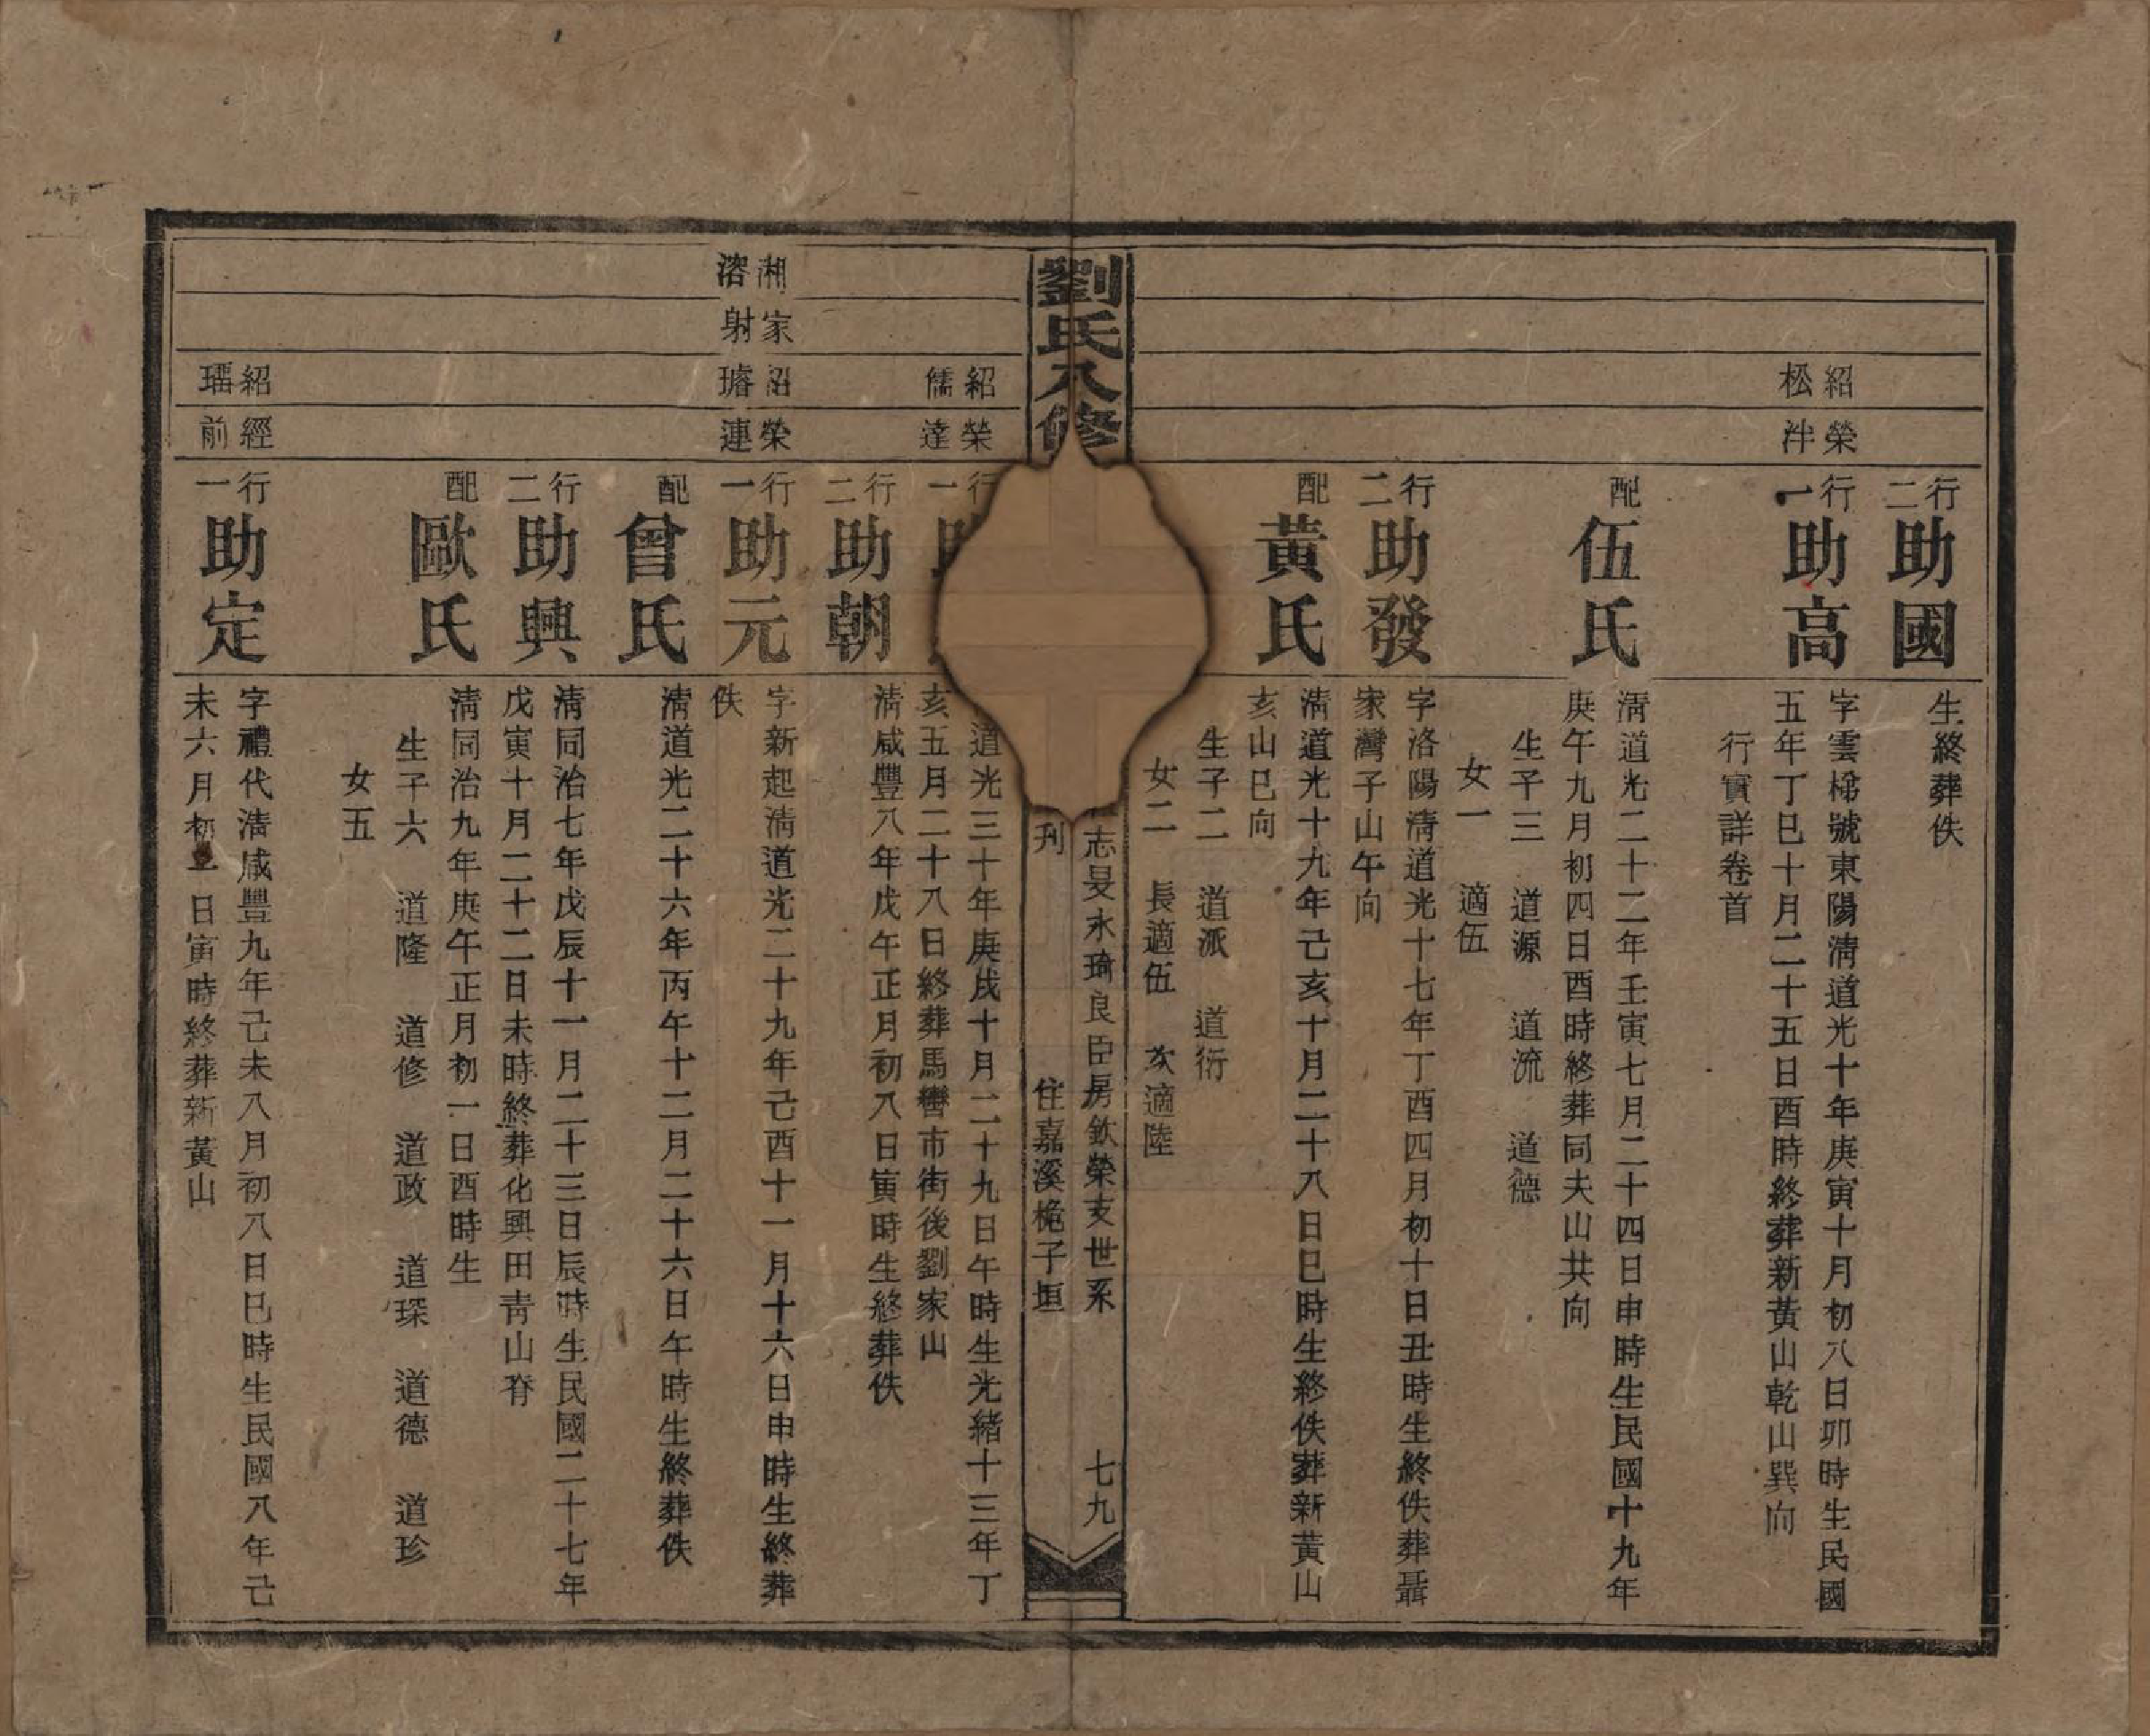 行二
助國
生終葬佚
紹松
榮泮
行一
助高
字雲梯號東陽清道光十年庚寅十月初八日卯時生民國
五年丁巳十月二十五日酉時終葬新黃山乾山巽向
行實詳卷首
配
伍氏
清道光二十二年壬寅七月二十四日申時生民國十九年
庚午九月初四日酉時終葬同夫山共向
生子三　道源　道流　道德
女一　適伍
行二
助發
字洛陽清道光十七年丁酉四月初十日丑時生終佚葬聶
家灣子山午向
配
黃氏
清道光十九年己亥十月二十八日巳時生終佚葬新黃山
亥山巳向
生子二　道派　道衍
女二　長適伍　次適陸
劉氏八修
志旻永琦良臣房欽榮支世系
七九
刋
住嘉溪桅子垣
紹儒
榮達
行一
道光三十年庚戌十月二十九日午時生光緒十三年丁
亥五月二十八日終葬馬轡市街後劉家山
行二
助朝
清咸豐八年戊午正月初八日寅時生終葬佚
湘溶
家射
紹璿
榮連
行一
助元
字新起清道光二十九年己酉十一月十六日申時生終葬
佚
配
曾氏
清道光二十六年丙午十二月二十六日午時生終葬佚
行二
助興
清同治七年戊辰十一月二十三日辰時生民國二十七年
戊寅十月二十二日未時終葬化興田靑山脊
配
歐氏
清同治九年庚午正月初一日酉時生
生子六　道隆　道修　道政　道琛　道德　道珍
女五
紹璠
經前
行一
助定
字禮代清咸豐九年己未八月初八日巳時生民國八年己
未六月初日寅時終葬新黃山